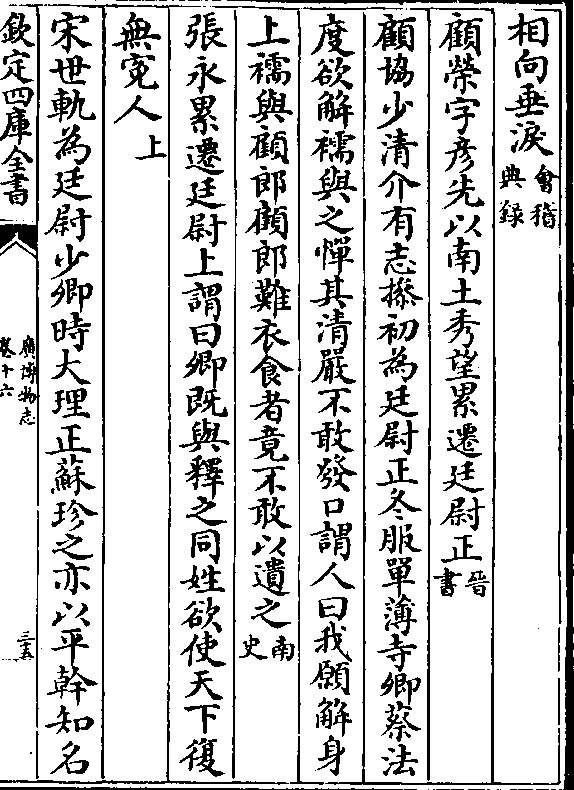 相向垂淚會稽典録
顧榮字彦先以南土秀望累遷廷尉正晉書
顧協少清介有志操初為廷尉正冬服單薄寺卿蔡法
度欲解襦與之憚其清嚴不敢發口謂人曰我願解身
上襦與顧郎顧郎難衣食者竟不敢以遺之南史
張永累遷廷尉上謂曰卿既與釋之同姓欲使天下復
無寃人上
宋世軌為廷尉少卿時大理正蘇珍之亦以平幹知名
欽定四庫全書
廣博物志
卷十六
三五